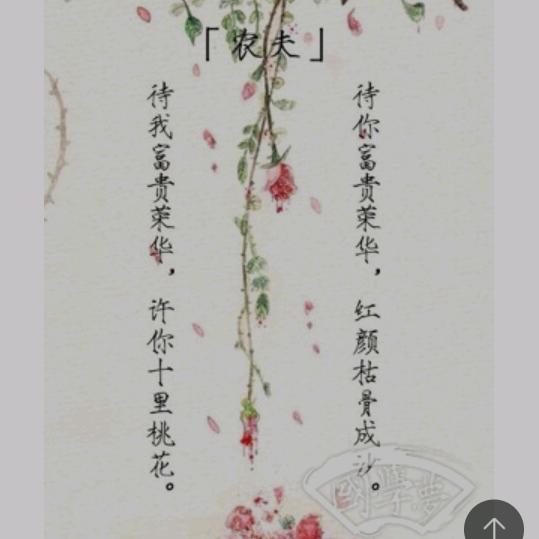 「农夫」
待我富贵荣华，许你十里桃花。
待你富贵荣华，红颜枯骨成沙。
國學夢